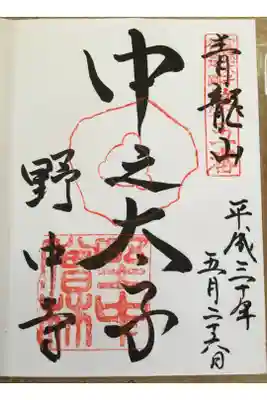 青龍山
中之太子
野中寺
平成三十年
五月二十六日